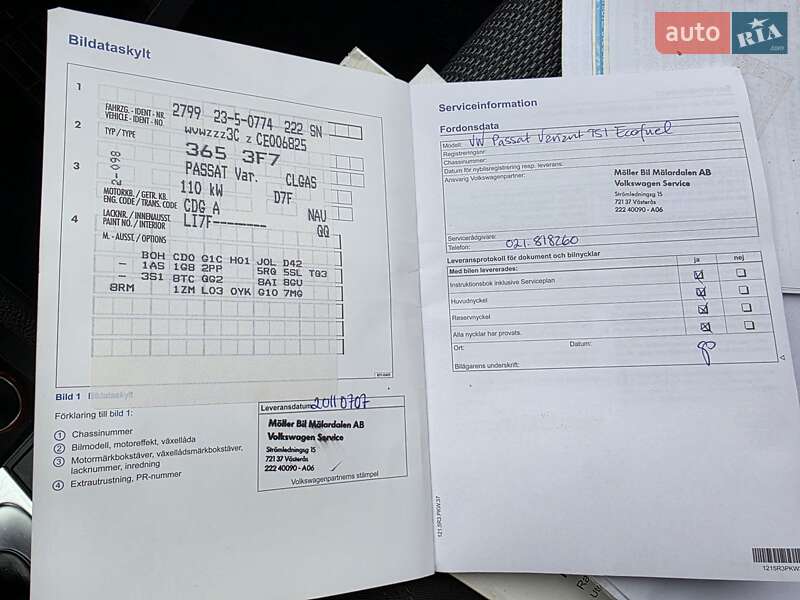 auto RIA.com
Bildataskylt
1
FAHRZG.-IDENT-NR.
VEHICLE-IDENT-NO.
2799 23-5-0774 222 SN
2
WVWZZZ3C Z CE006825
TYP/TYPE
365 3F7
3
PASSAT Var. CLGAS
110 kW D7F
MOTORKB./GETR. KB.
ENG. CODE/TRANS. CODE
CDG A NAU
4
LACKNR./INNENAUSST.
PAINT NO./INTERIOR
LI7F-------- QQ
M.-AUSST./OPTIONS
BOH CDO G1C HO1 JOL D42
- 1AS 1G8 2PP 5RQ 5SL TG3
- 3S1 8TC GG2 8AI 8GU
8RM 1ZM L03 OYK G10 7MG
Bild 1 Bildataskylt
Förklaring till bild 1:
1 Chassinummer
2 Bilmodell, motoreffekt, växellåda
3 Motormärkbokstäver, växellådsmärkbokstäver,
lacknummer, inredning
4 Extrautrustning, PR-nummer
Leveransdatum 20110707
Möller Bil Mälardalen AB
Volkswagen Service
Strömledningsg 15
721 37 Västerås
222 40090 - A06
Volkswagenpartnerns stämpel
Serviceinformation
Fordonsdata
Modell: VW Passat Variant TSI Ecofuel
Registreringsnr:
Chassinummer:
Datum för nybilsregistrering resp. leverans:
Ansvarig Volkswagenpartner:
Möller Bil Mälardalen AB
Volkswagen Service
Strömledningsg 15
721 37 Västerås
222 40090 - A06
Servicerådgivare:
Telefon: 021-818260
Leveransprotokoll för dokument och bilnycklar
Med bilen levererades: ja nej
Instruktionsbok inklusive Serviceplan
Huvudnyckel
Reservnyckel
Alla nycklar har provats.
Ort: Datum:
Bilägarens underskrift:
121.5R3.PKW.37